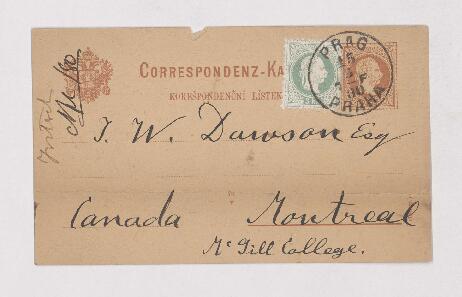 CORRESPONDENZ-KA
KORESPONDENČNÍ LÍSTEK
PRAG
PRAHA
J. W. Dawson Esq
Canada Montreal
Mc Gill College.